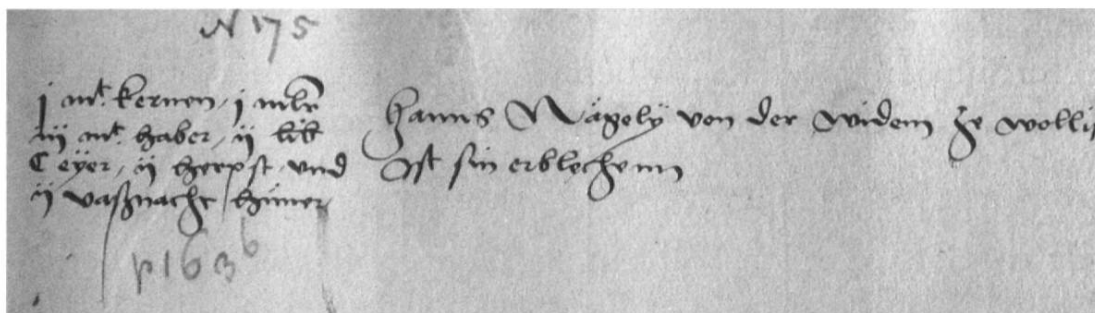 N 175
j mt. kernen, j mlr
iij mt. haber, ij lib
C eyer, ij herpst, und
ij vaßnacht hüner
p 163 b
Hanns Nägely von der widem ze wollis
Ist sin erblechenn